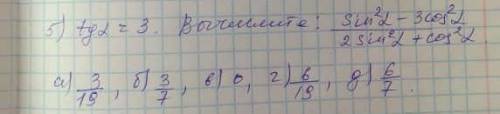 5) tgα = 3. Вычислите: (sin²α - 3cos²α)/(2sin²α + cos²α)
а) 3/19, б) 3/7, в) 0, г) 6/19, д) 6/7.